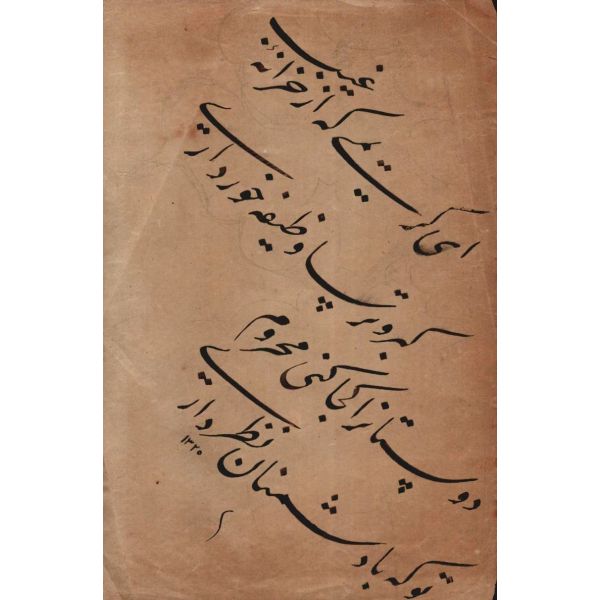 ای کریمی که از خزانه غیب
گبر و ترسا وظیفه خور داری
دوستانرا کجا کنی محروم
تو که با دشمنان نظر داری
۱۳۲۰